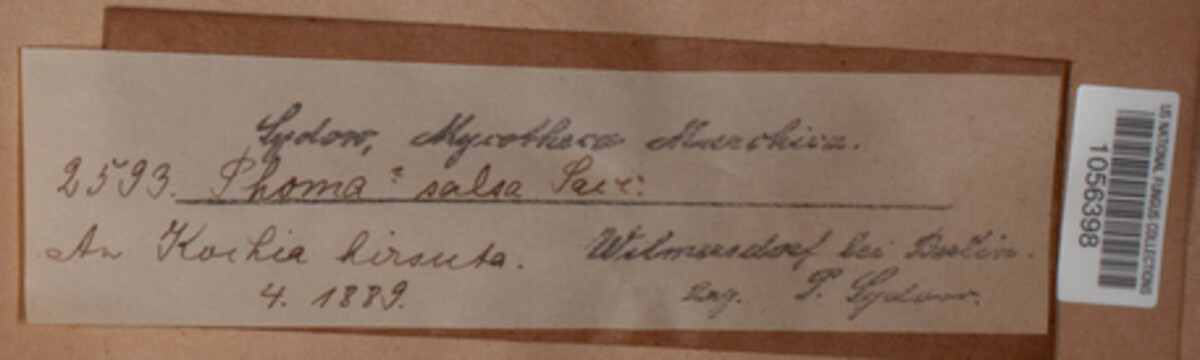 Sydow, Mycotheca Marchica.
2593. Phoma? salsa Sacc:
An Kochia hirsuta. Wilmersdorf bei Berlin.
4. 1889. Leg. P. Sydow.
US NATIONAL FUNGUS COLLECTIONS
1056398